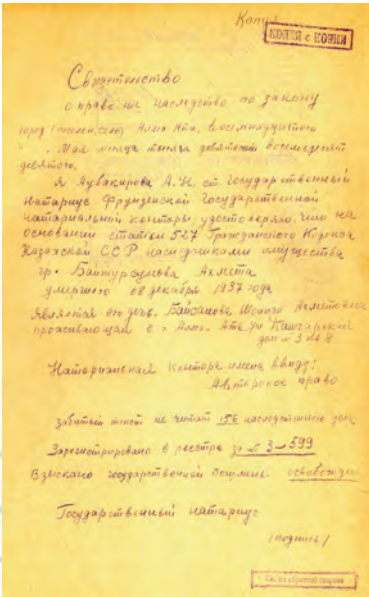 Копия
КОПИЯ с КОПИИ
Свидетельство
о праве на наследство по закону
город (поселок, село) Алма Ата, восемнадцатого
Мая месяца тысяча девятьсот восемьдесят
девятого.
Я Аубакирова А.Н. ст. государственный
нотариус Фрунзенской Государственной
натариальной конторы, удостоверяю, что на
основании статьи 527 Гражданского Кодекса
Казахской ССР наследниками имущества
гр. Байтурсунова Ахмета
умершего 08 декабря 1937 года
является его дочь. Байсалова Шолпан Ахметовна
проживающая в г. Алма-Ата ул Кашгарская
дом № 3 кв 8
Натариальная контора имеет ввиду:
Авторское право
забитый текст не читать 156 наследственное дело
Зарегистрировано в реестре за № 3-599
Взыскано государственной пошлины освобожден
Государственный натариус
/подпись/
См. на обратной стороне